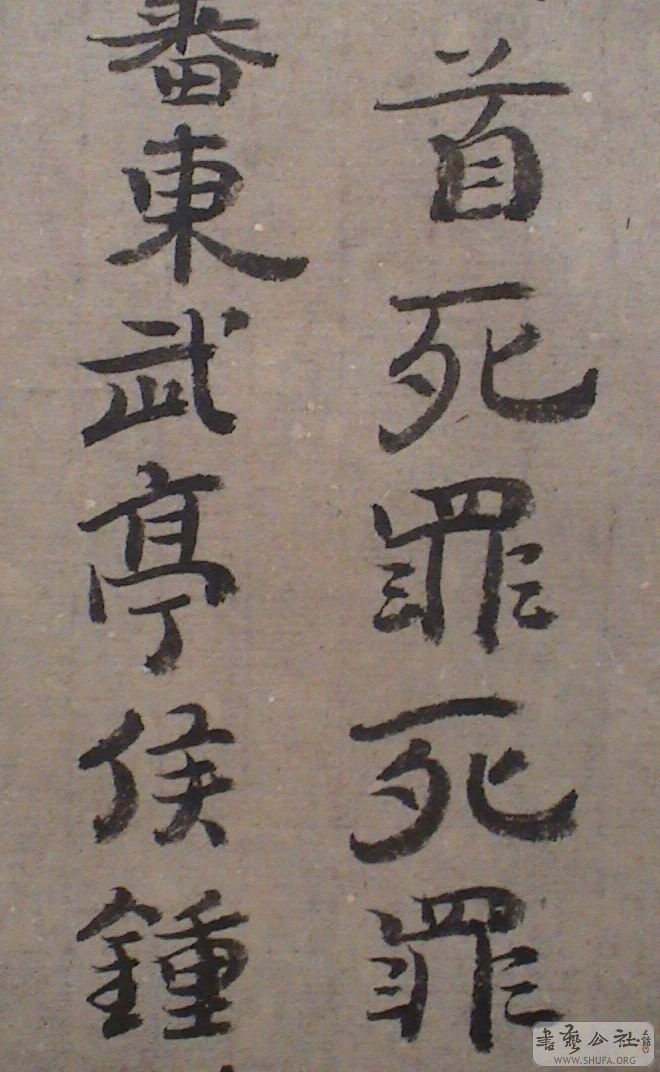 首死罪死罪
番東武亭侯鍾
書藝公社
WWW.SHUFA.ORG